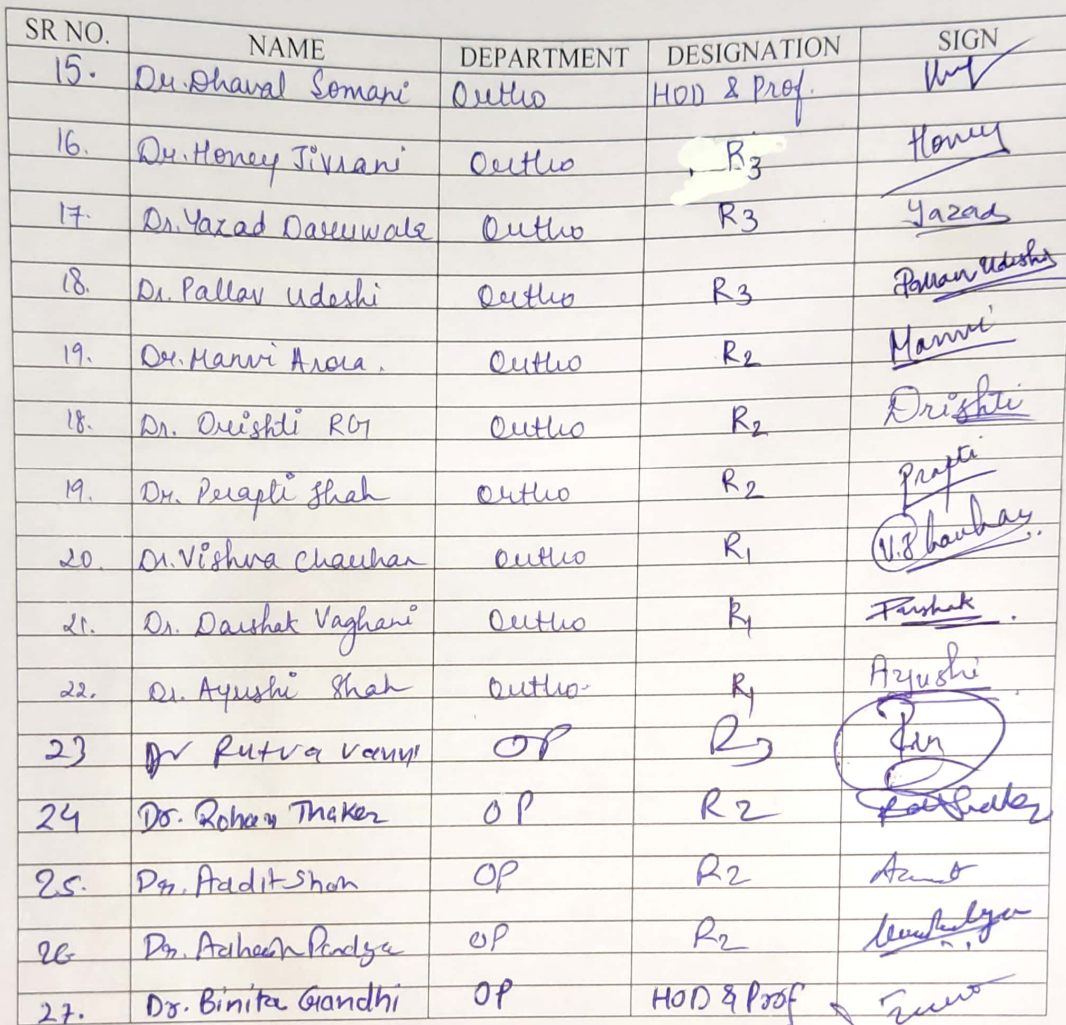 SR NO. NAME DEPARTMENT DESIGNATION SIGN
15. Dr. Dhaval Somani Ortho HOD & Prof.
16. Dr. Honey Jivrani Ortho R3 Honey
17. Dr. Yazad Daruwala Ortho R3 Yazad
18. Dr. Pallav Udeshi Ortho R3 Pallav Udeshi
19. Dr. Manvi Arora. Ortho R2 Manvi
18. Dr. Drishti RG Ortho R2 Drishti
19. Dr. Prapti Shah Ortho R2 Prapti
20. Dr. Vishva Chauhan Ortho R1 V.S Chauhan
21. Dr. Darshak Vaghani Ortho R1 Darshak.
22. Dr. Ayushi Shah Ortho- R1 Ayushi
23 Dr Rutva OP R3
24 Dr. Rohan Thaker OP R2
25. Dr. Aadit Shah OP R2
26 Dr. Pandya OP R2
27. Dr. Binita Gandhi OP HOD & Prof